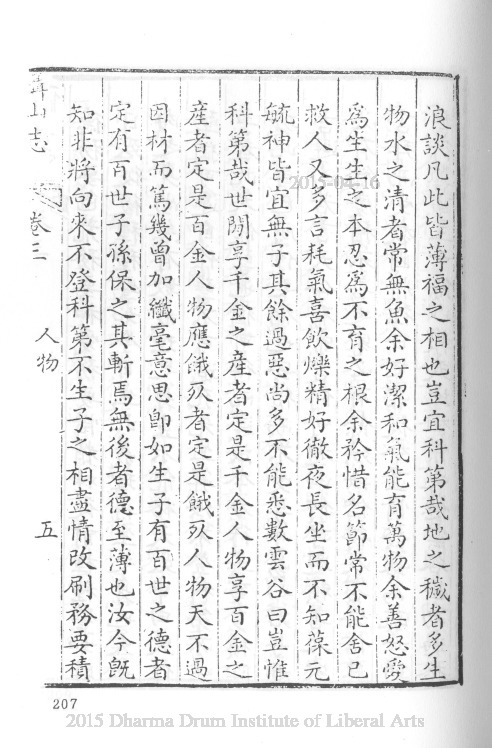 浪談凡此皆薄福之相也豈宜科第哉地之穢者多生
物水之清者常無魚余好潔和氣能育萬物余善怒愛
為生生之本忍為不育之根余矜惜名節常不能舍已
救人又多言耗氣喜飲爍精好徹夜長坐而不知葆元
毓神皆宜無子其餘過惡尚多不能悉數雲谷曰豈惟
科第哉世間享千金之産者定是千金人物享百金之
産者定是百金人物應餓死者定是餓死人物天不過
因材而篤幾曾加纖毫意思即如生子有百世之德者
定有百世子孫保之其斬焉無後者德至薄也汝今既
知非將向來不登科第不生子之相盡情改刷務要積
山志 卷三 人物 五
2015-04-16
207
2015 Dharma Drum Institute of Liberal Arts